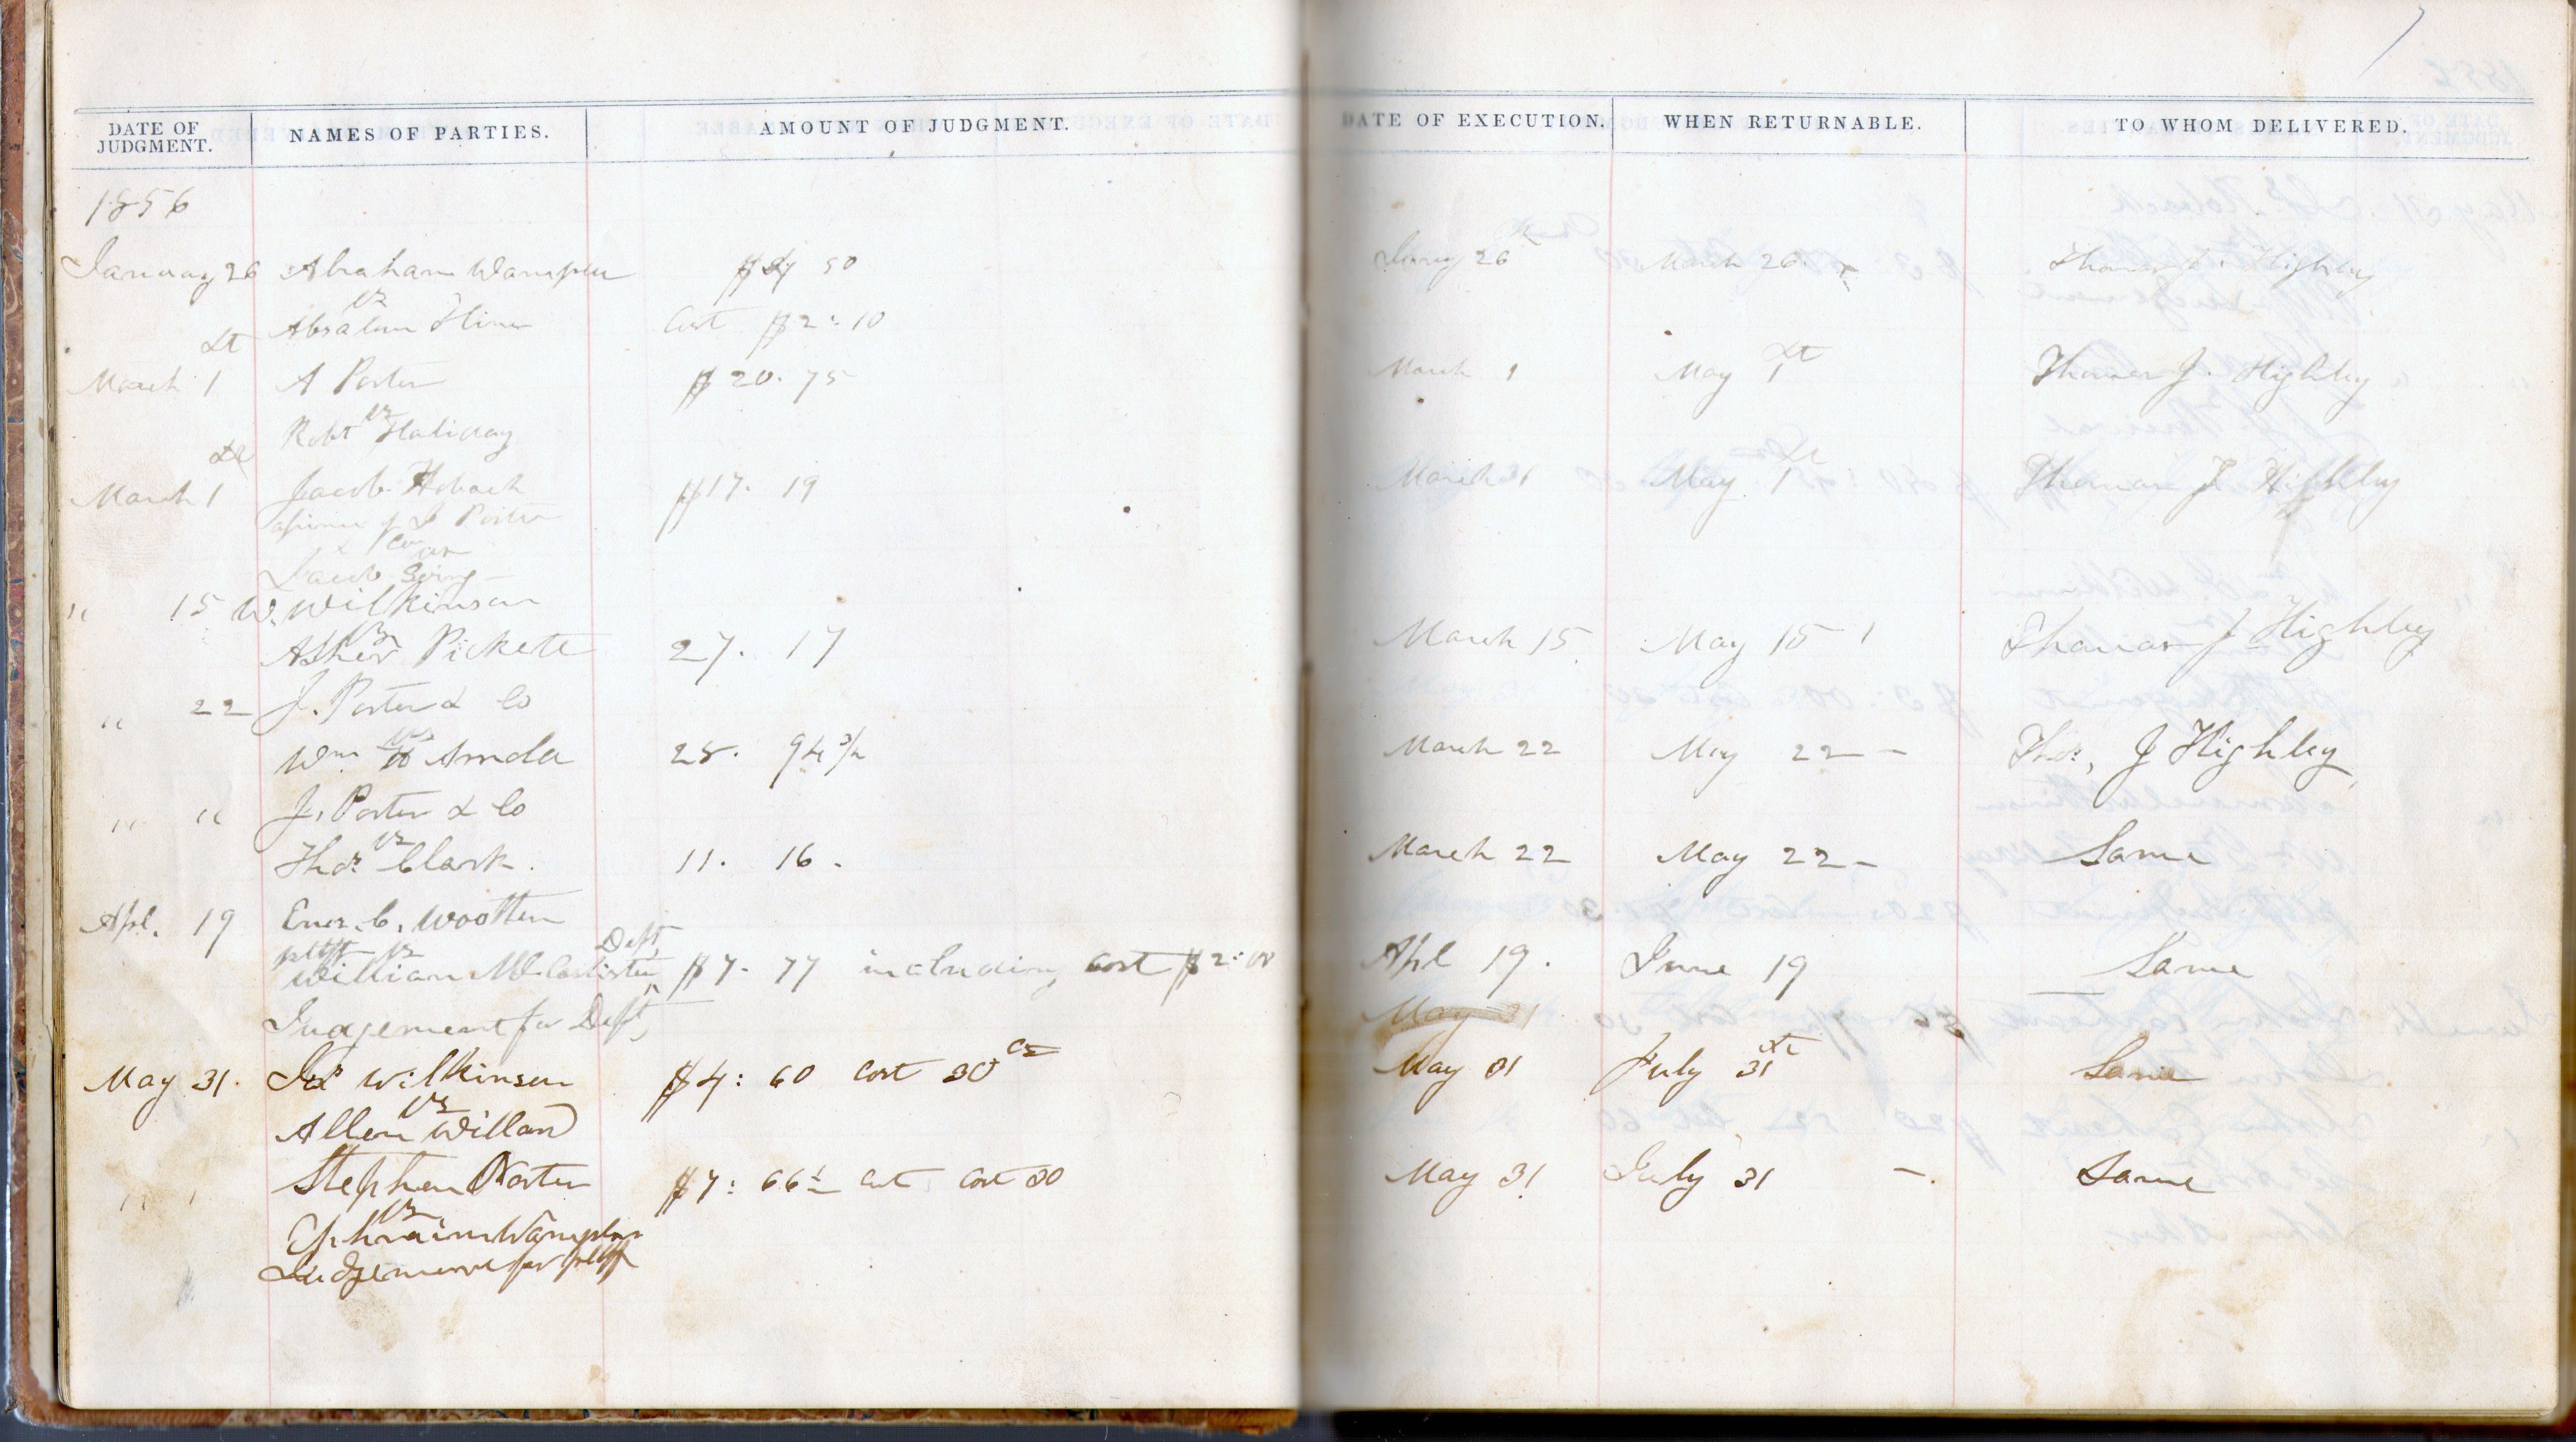 DATE OF JUDGMENT. NAMES OF PARTIES. AMOUNT OF JUDGMENT. DATE OF EXECUTION. WHEN RETURNABLE. TO WHOM DELIVERED.
1856
January 26 Abraham 50 26 March 26. Thomas J. Highley
vs
Cost $2:10
March 1st A Porter $20.75 March 1 May 1st Thomas J. Highley
vs
Robt Haliday
March 1st Jacob Hobach $17. 19 March 1 May 1st Thomas J. Highley
of J Porter
& Co vs
Jacob
" 15 W. Wilkinson
vs
Asher Pickett 27. 17 March 15 May 15 Thomas J Highley
" 22 J. Porter & Co
vs
Wm 28. 94 March 22 May 22 - Thos, J Highley
" " J. Porter & Co
vs
Thos Clark. 11. 16. March 22 May 22 - Same
Apl. 19 C. Wootten
pltff vs Deft
William $7. 77 including cost $2:00 Apl 19. June 19 Same
Judgement for Deft, May 31
May 31. Wilkinson $4: 60 cost 30 cs May 31 July 31st Same
vs
Allen Willard
" " Stephen Porter $7: 66 cost 30 May 31 July 31 - Same
vs
Ephraim Wampler
Judgement for pltff